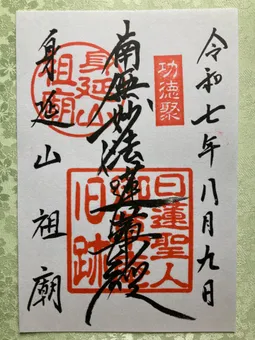 令和七年八月九日
功徳聚
南無妙法蓮華経
日蓮聖人
旧跡
身延山
祖廟
身延山祖廟